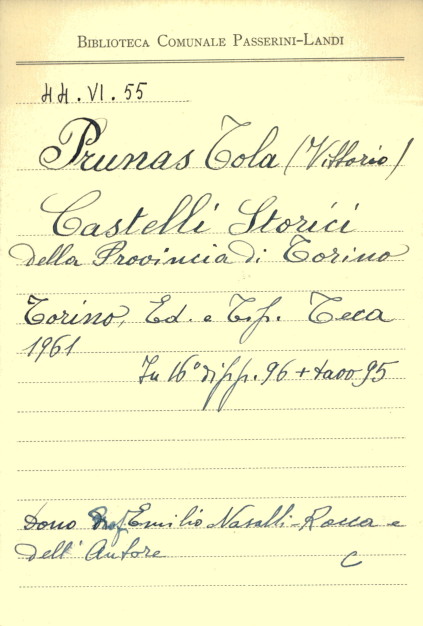 BIBLIOTECA COMUNALE PASSERINI-LANDI
HH.VI.55
Prunas Tola (Vittorio)
Castelli Storici
della Provincia di Torino
Torino, Ed. e Tip. Teca
1961
In 16° di pp. 96 + tavv 95
Dono Prof. Emilio Nasalli-Rocca e
dell'Autore
C